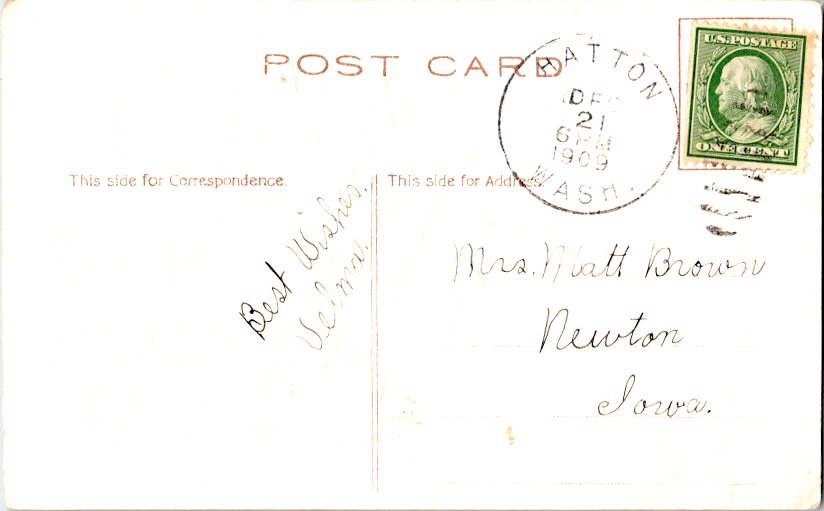 POST CARD
HATTON
DEC
21
6 PM
1909
WASH.
U.S. POSTAGE
ONE CENT
This side for Correspondence.
This side for Address.
Best Wishes.
Velma.
Mrs. Matt Brown
Newton
Iowa.